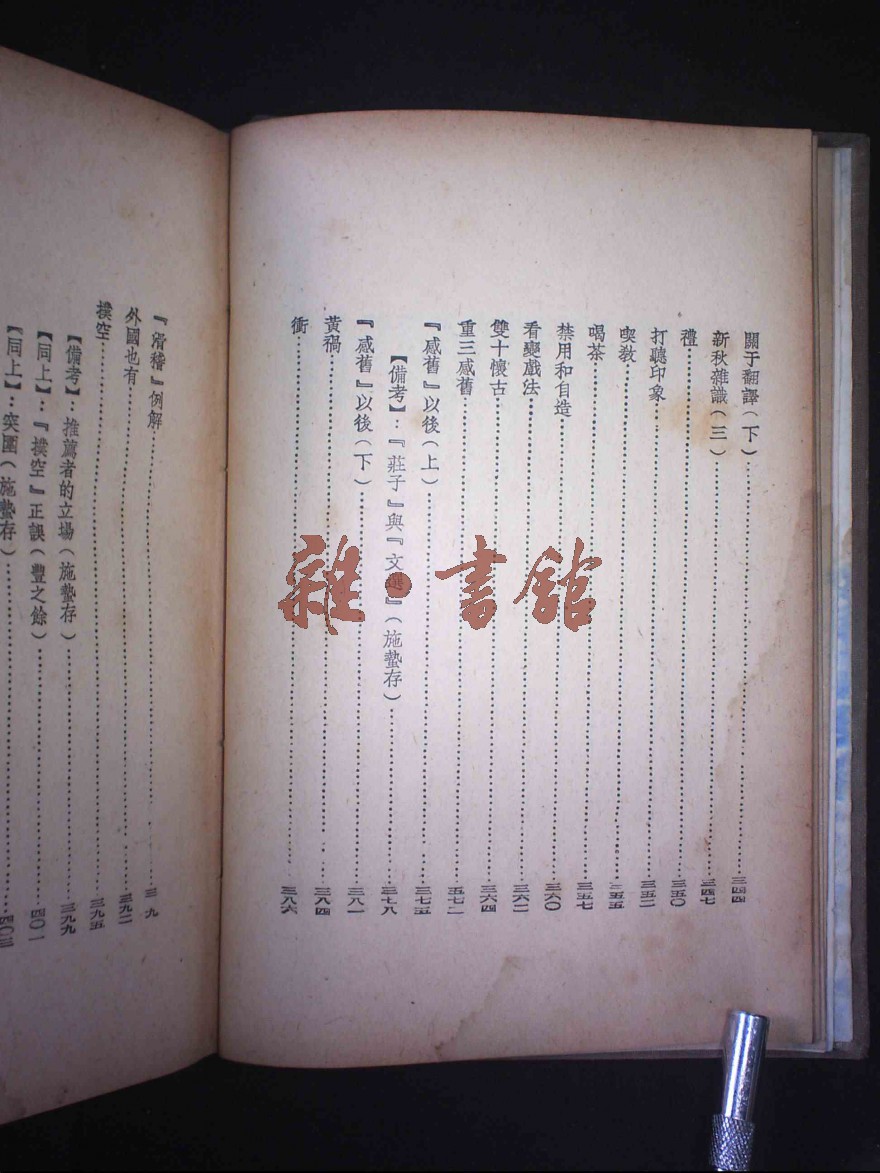 關于翻譯(下)……三四四
新秋雜識(三)……三四七
禮……三五〇
打聽印象……三五二
喫教……三五五
喝茶……三五七
禁用和自造……三六〇
看變戲法……三六二
雙十懷古……三六四
重三感舊……五七二
『感舊』以後(上)……三七五
【備考】:『莊子』與『文選』(施蟄存)……三七八
『感舊』以後(下)……三八一
黃禍……三八四
衝……三八六
『滑稽』例解……三 九
外國也有……三九二
撲空……三九五
【備考】:推薦者的立場(施蟄存)……三九九
【同上】:『撲空』正誤(豐之餘)……四〇一
【同上】:突圍(施蟄存)……四〇三
雜·書館